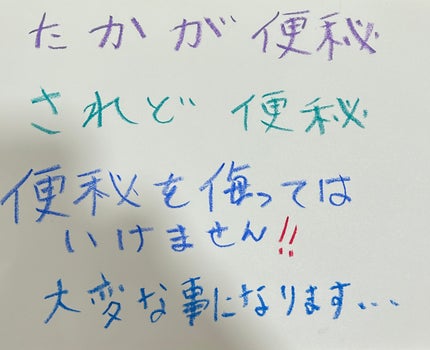 たかが便秘
されど便秘
便秘を侮っては
いけません!!
大変な事になります...